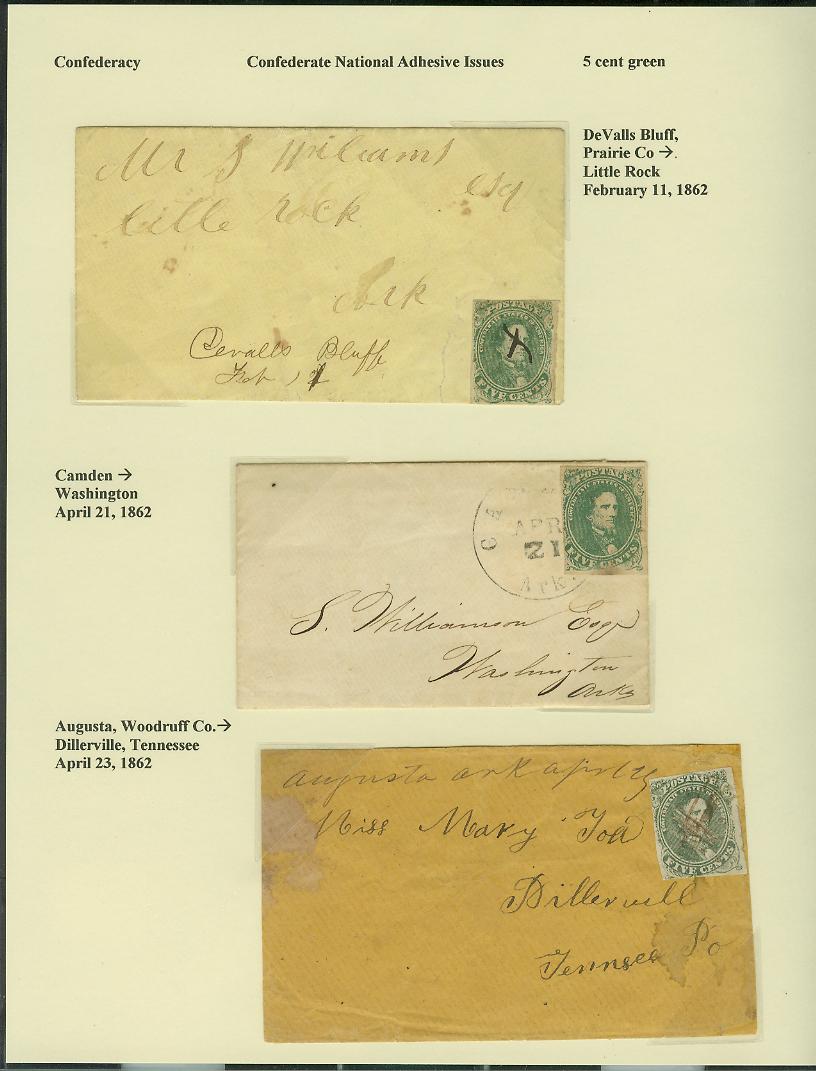 Confederacy Confederate National Adhesive Issues 5 cent green
DeValls Bluff,
Prairie Co →.
Little Rock
February 11, 1862
Mr S Williams
Esq
little Rock
Ark
Devalls Bluff
Feb 11
POSTAGE
CONFEDERATE STATES OF AMERICA
FIVE CENTS
Camden →
Washington
April 21, 1862
APR
21
Ark.
POSTAGE
CONFEDERATE STATES OF AMERICA
FIVE CENTS
S. Williamson Esqr
Washington
Arks
Augusta, Woodruff Co.→
Dillerville, Tennessee
April 23, 1862
augusta ark april 23
POSTAGE
CONFEDERATE STATES OF AMERICA
FIVE CENTS
Miss Mary
Dillervill
Tennsee Po